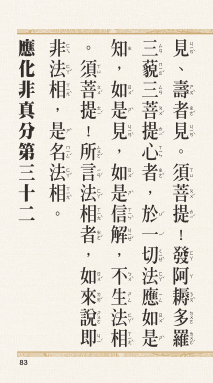 見、壽者見。須菩提！發阿耨多羅
三藐三菩提心者，於一切法應如是
知，如是見，如是信解，不生法相
。須菩提！所言法相者，如來說即
非法相，是名法相。
應化非真分第三十二
83